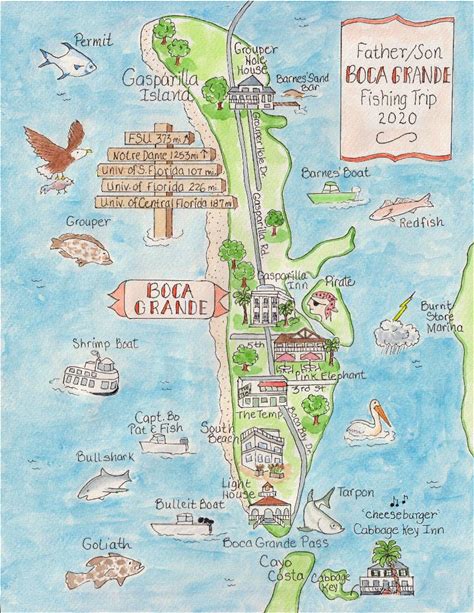 Father/Son
BOCA GRANDE
Fishing Trip
2020
Permit
Gasparilla
Island
Grouper
Hole
House
Barnes' Sand
Bar
Grouper Hole Dr.
FSU 373 mi
Notre Dame 1253 mi
Univ of S. Florida 107 mi
Univ. of Florida 226 mi
Univ. of Central Florida 187 mi
Barnes' Boat
Redfish
Grouper
Gasparilla Rd.
Gasparilla
Inn
Pirate
BOCA
GRANDE
Burnt
Store
Marina
Shrimp Boat
5th
Pink Elephant
3rd St
The Temp
Capt. Bo
Pat & Fish
South
Beach
Bullshark
Light
House
Tarpon
Bulleit Boat
"cheeseburger"
Cabbage Key Inn
Boca Grande Pass
Goliath
Cayo
Costa
Cabbage
Key